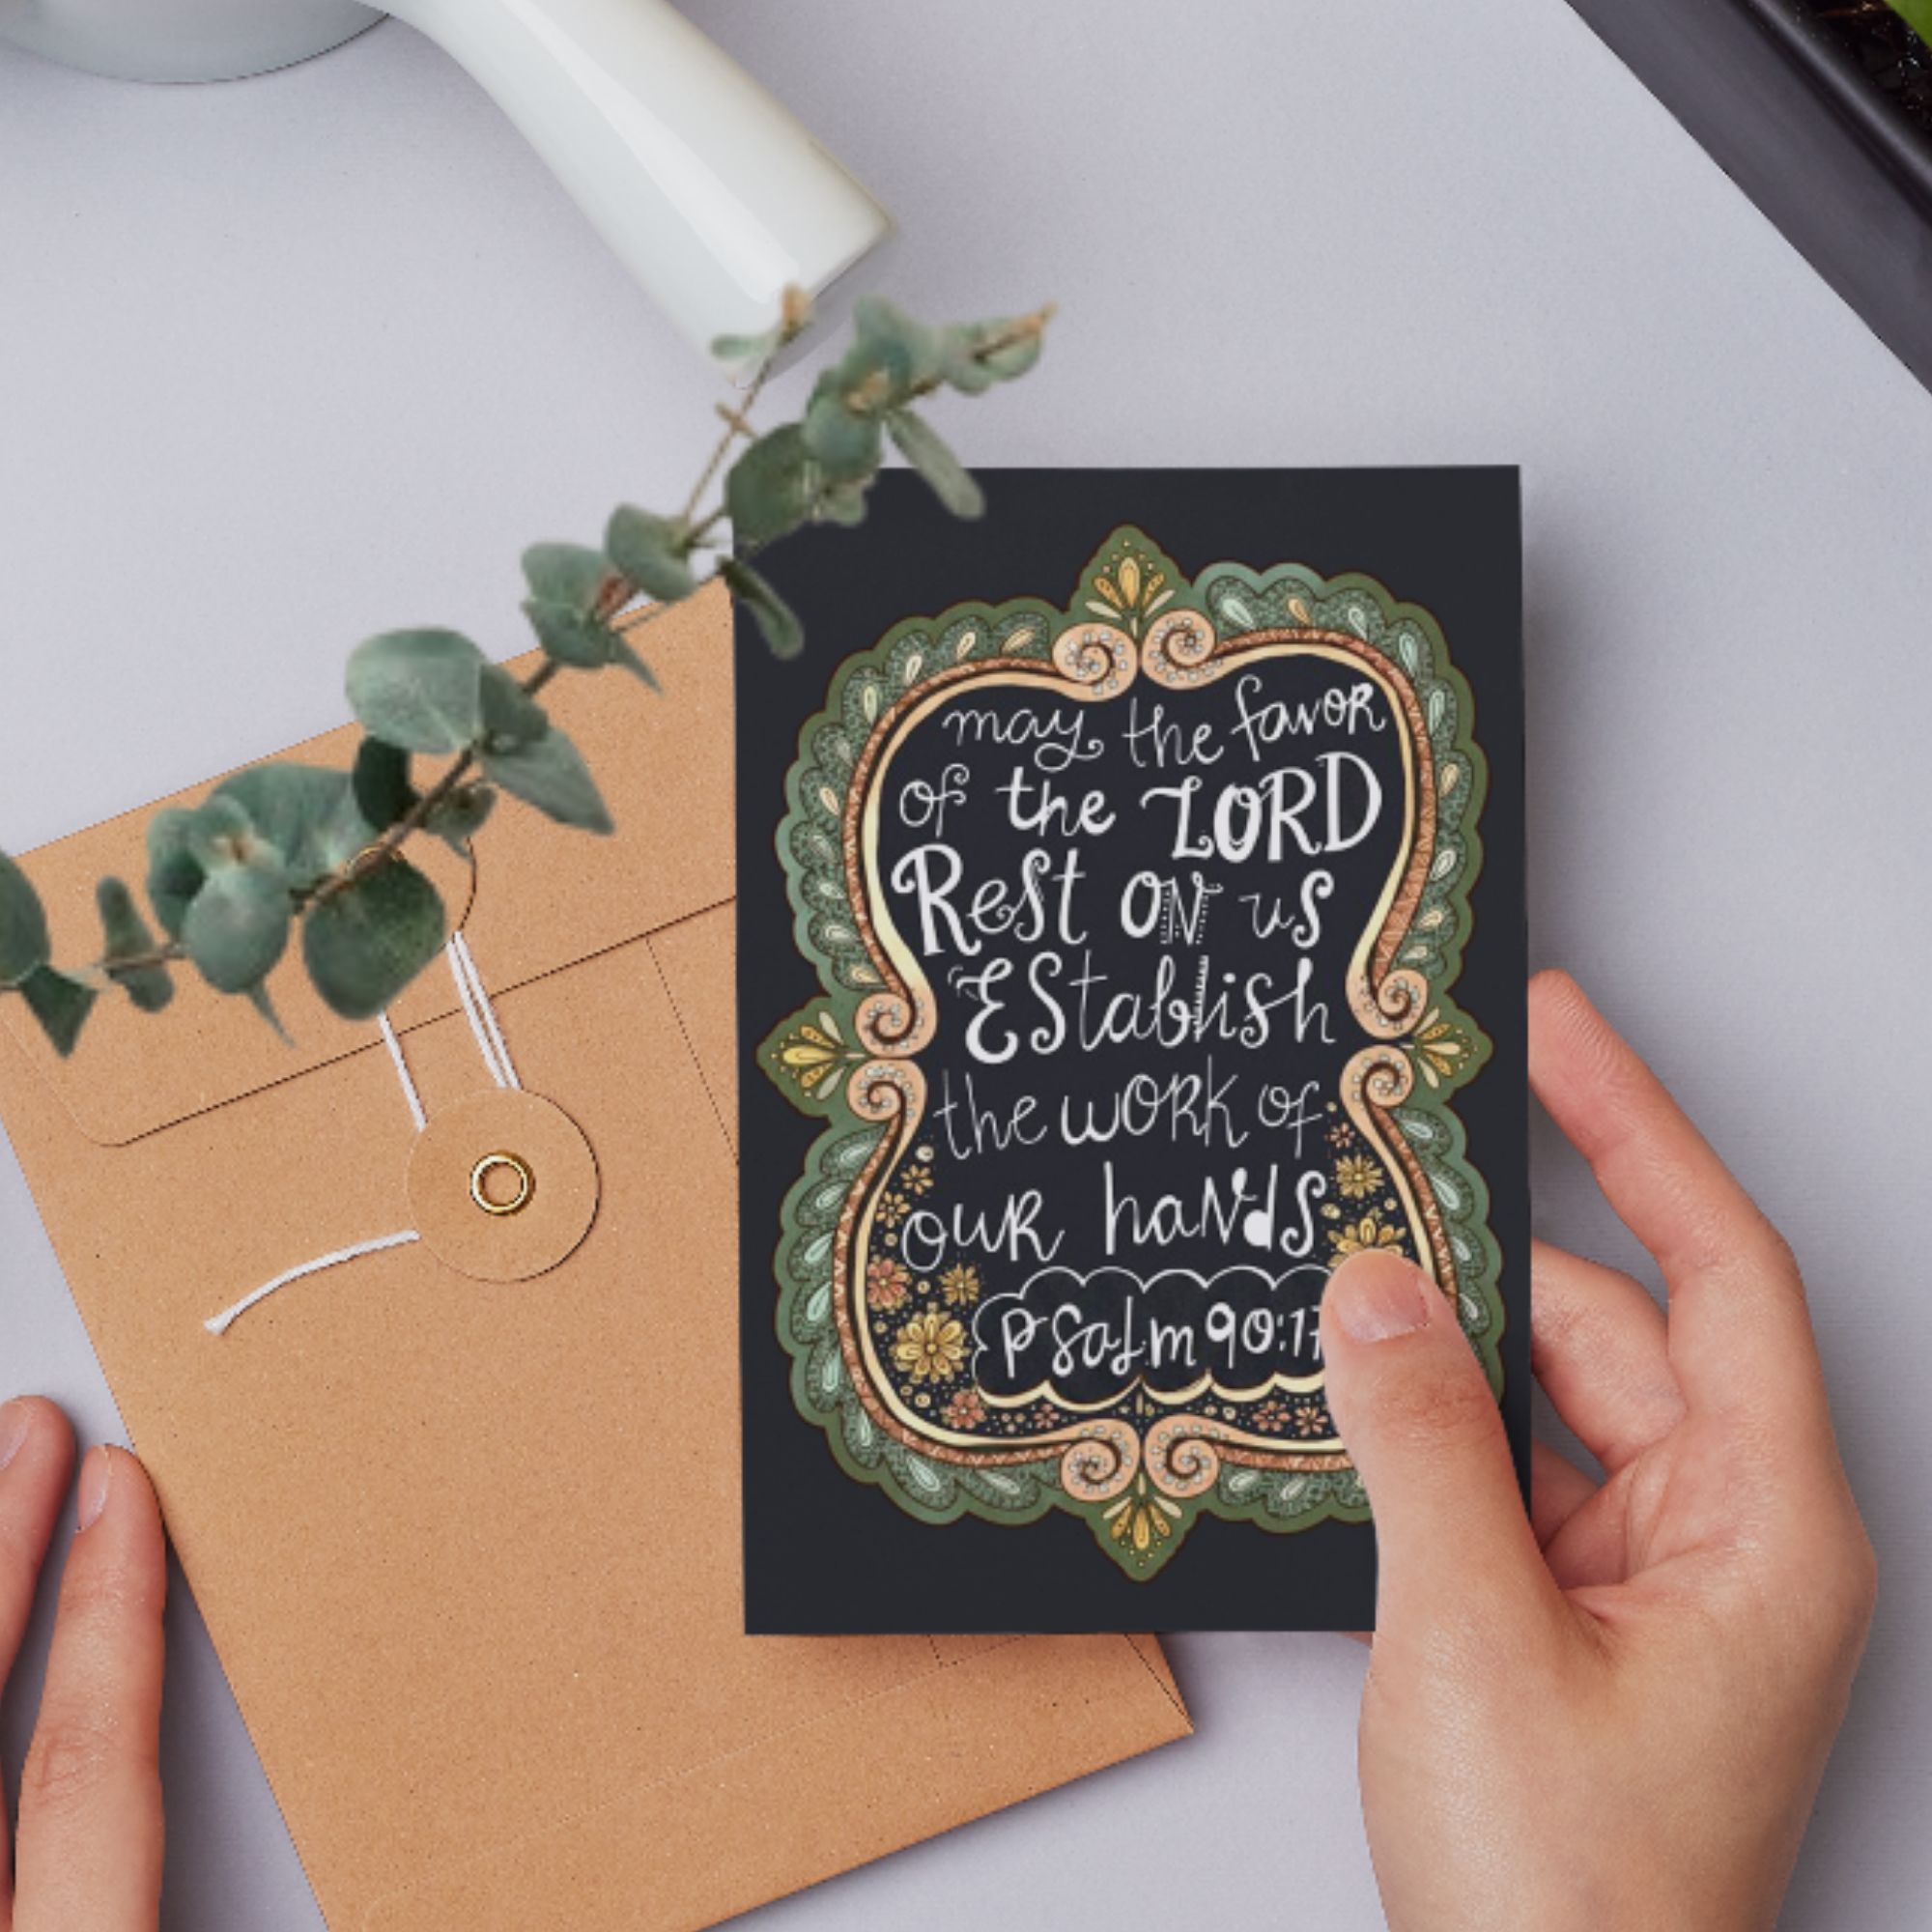 may the favor
of the LORD
Rest ON us
EStablish
the woRk of
ouR haNdS
PSalm 90:17